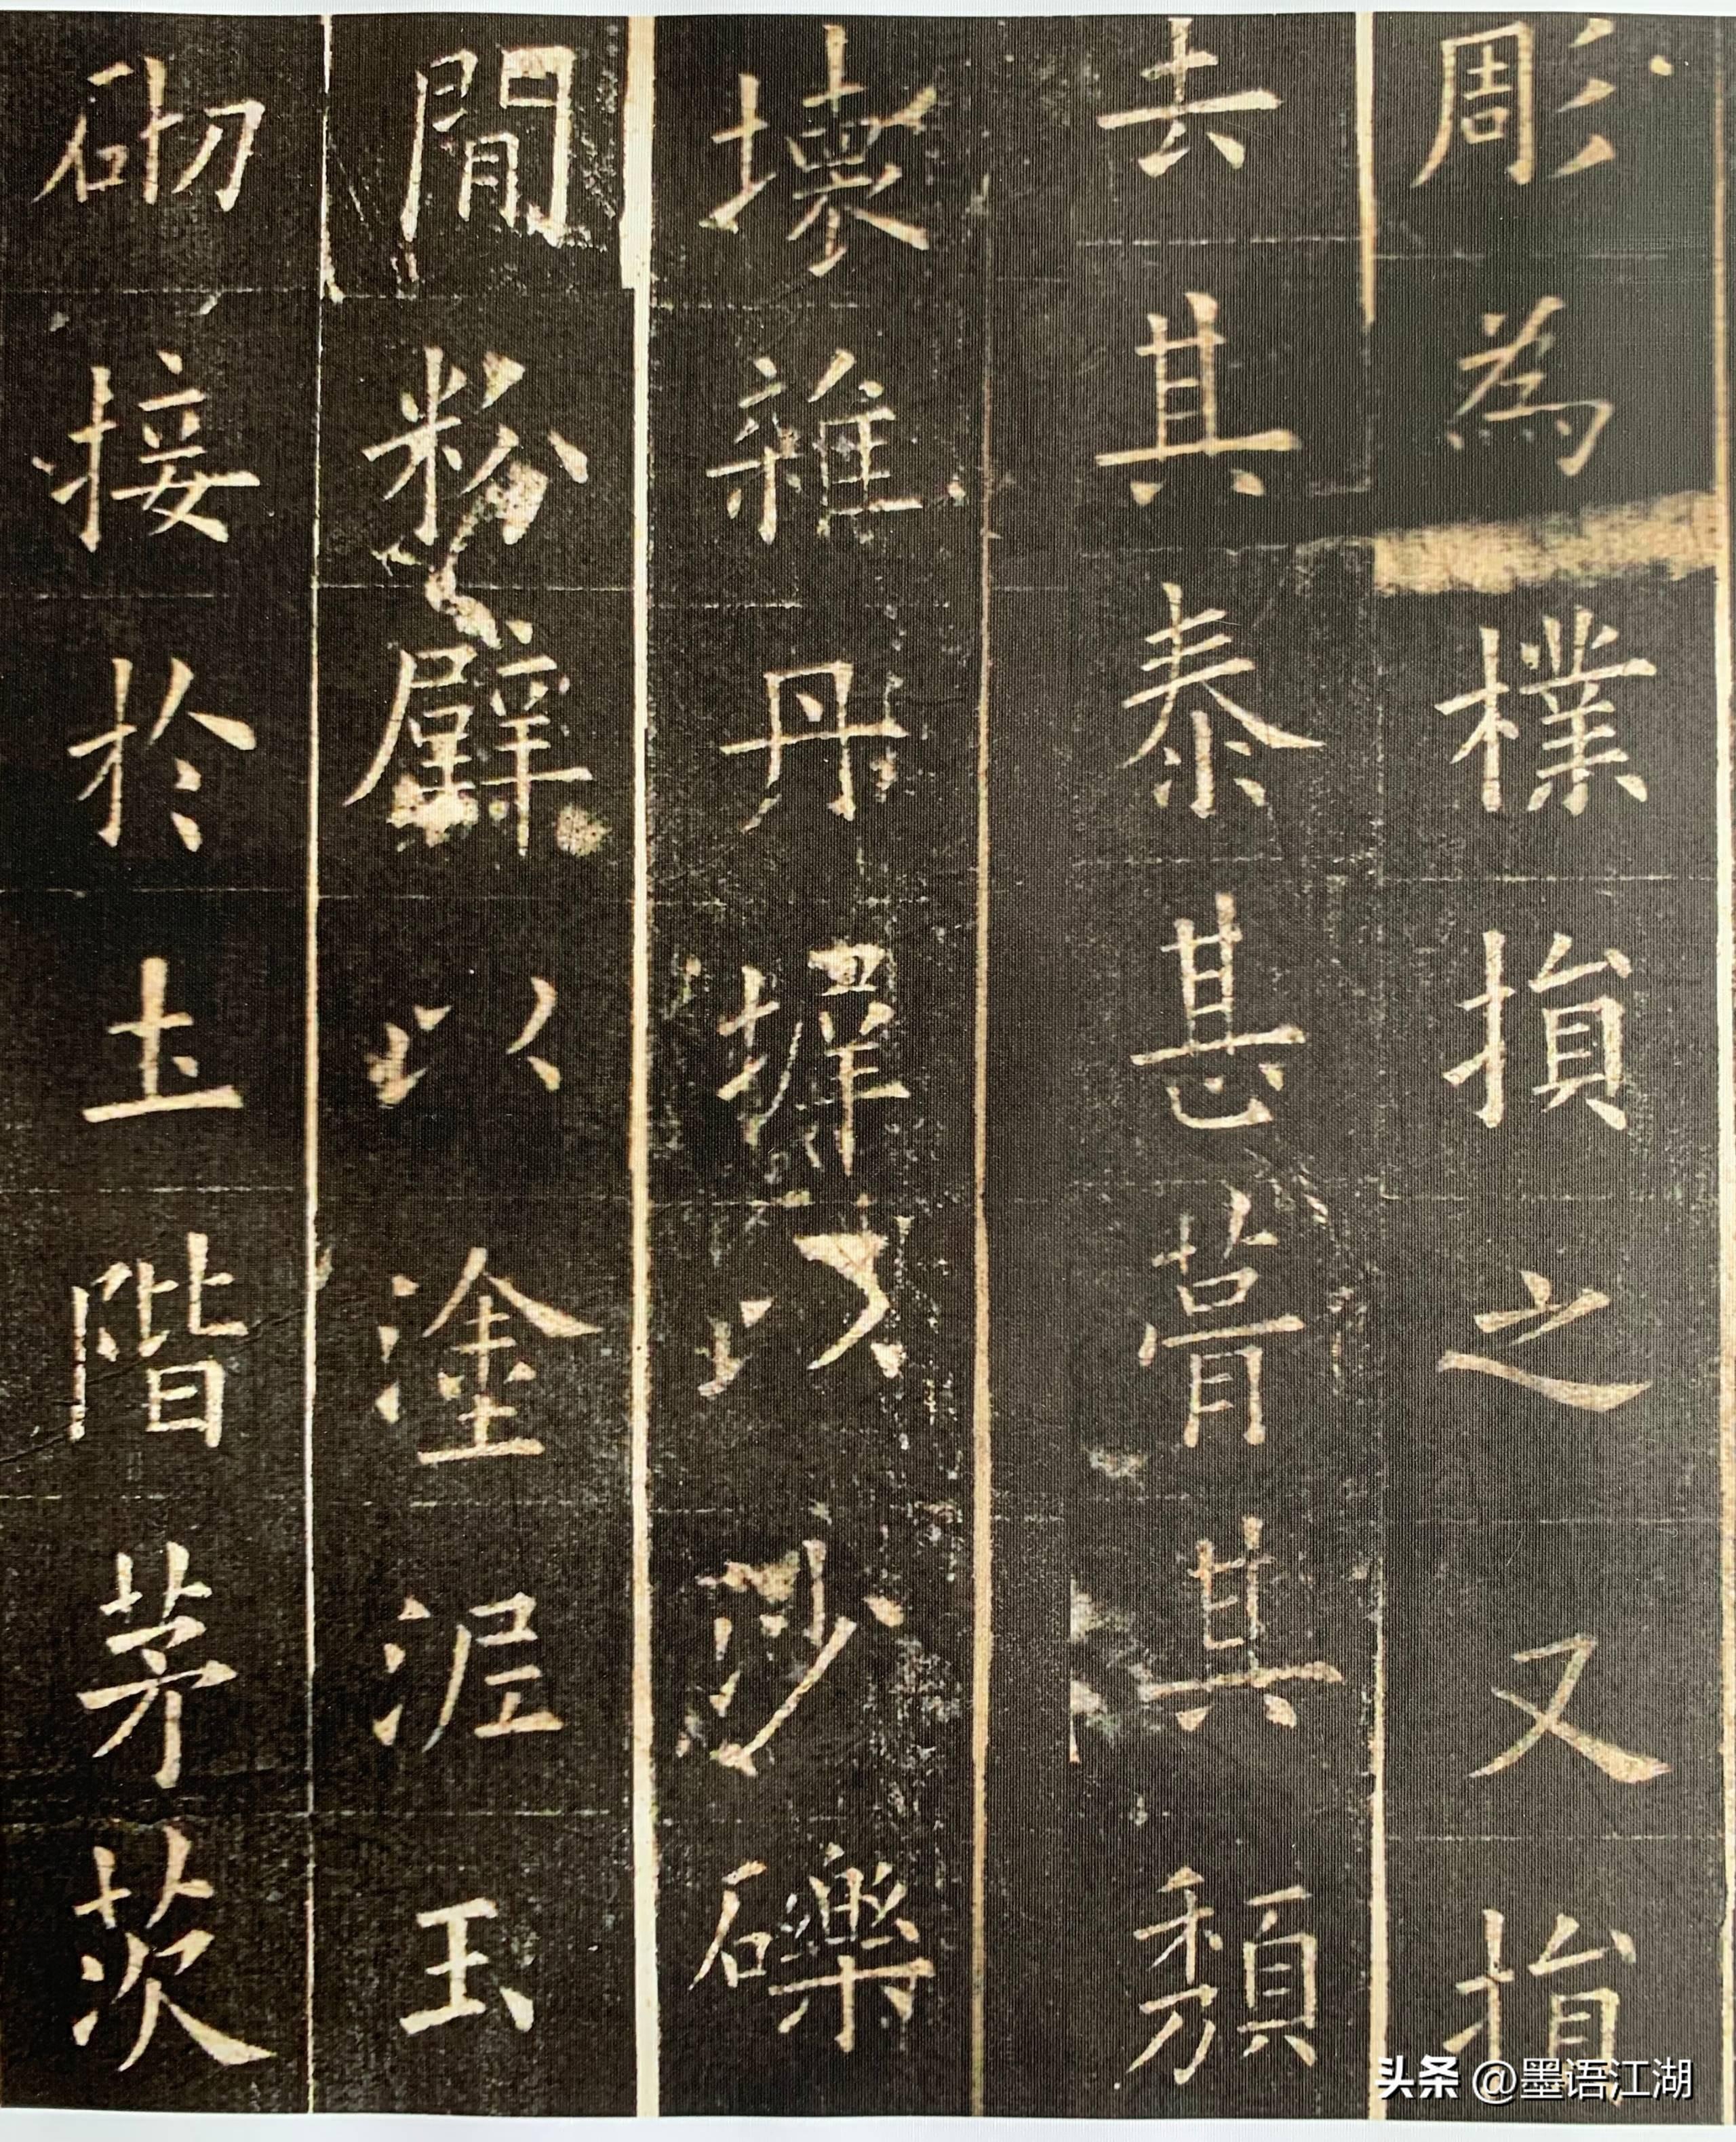 彫為樸損之又損
去其泰甚葺其頹
壞雜丹墀以沙礫
間粉壁以塗泥玉
砌接於土階茅茨
头条 @墨语江湖